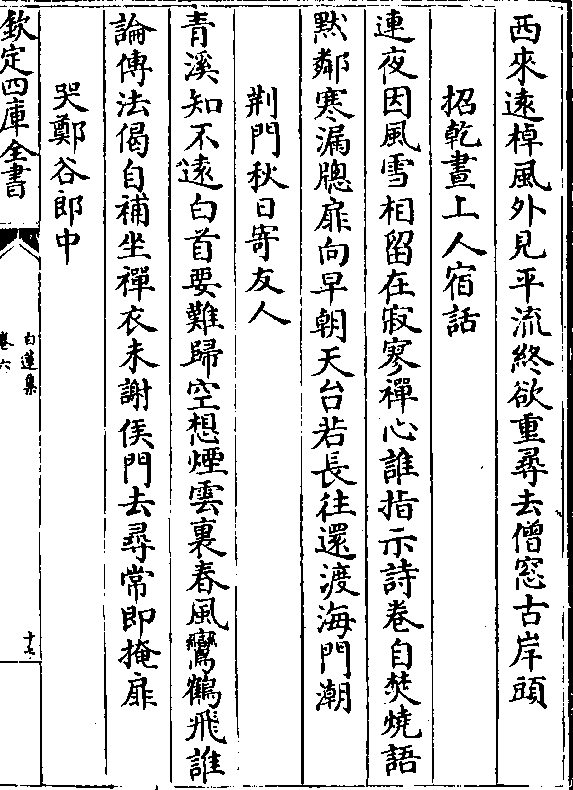 西來遠棹風外見平流終欲重尋去僧窓古岸頭
招乾晝上人宿話
連夜因風雪相留在寂寥禪心誰指示詩卷自焚燒語
默鄰寒漏牕扉向早朝天台若長往還渡海門潮
荆門秋日寄友人
青溪知不遠白首要難歸空想煙雲裏春風鸞鶴飛誰
論傳法偈自補坐禪衣未謝侯門去尋常即掩扉
哭鄭谷郎中
欽定四庫全書
白蓮集
卷六
十七